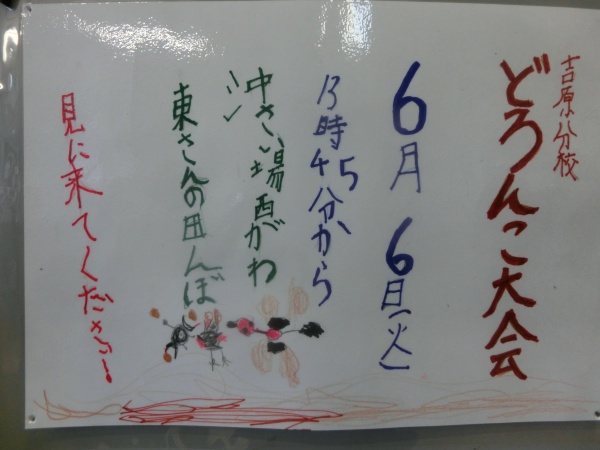 吉原分校
どろんこ大会
6月6日(火)
13時45分から
中さい場西がわ
東さんの田んぼ
見に来てください!